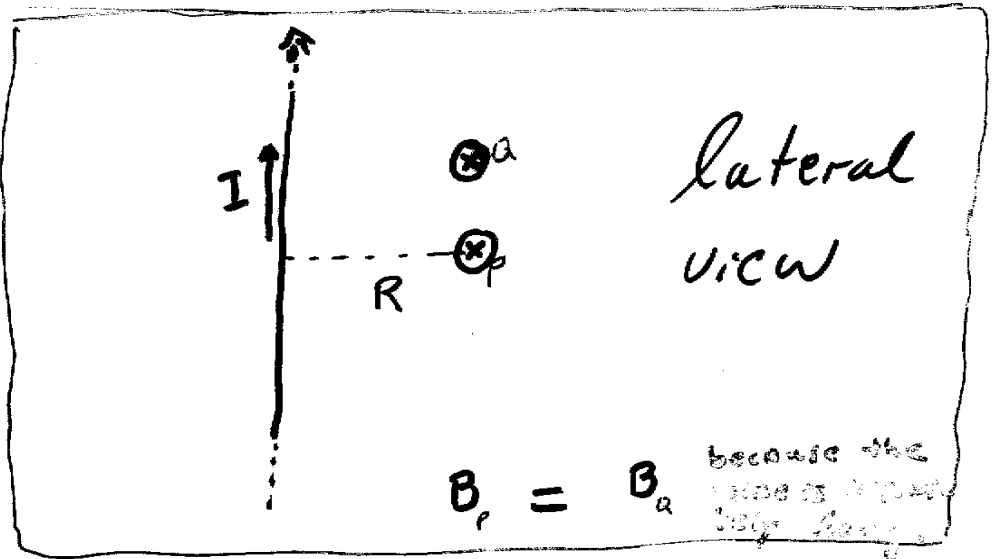 I
Q
lateral
P
view
R
B_P = B_Q
because the